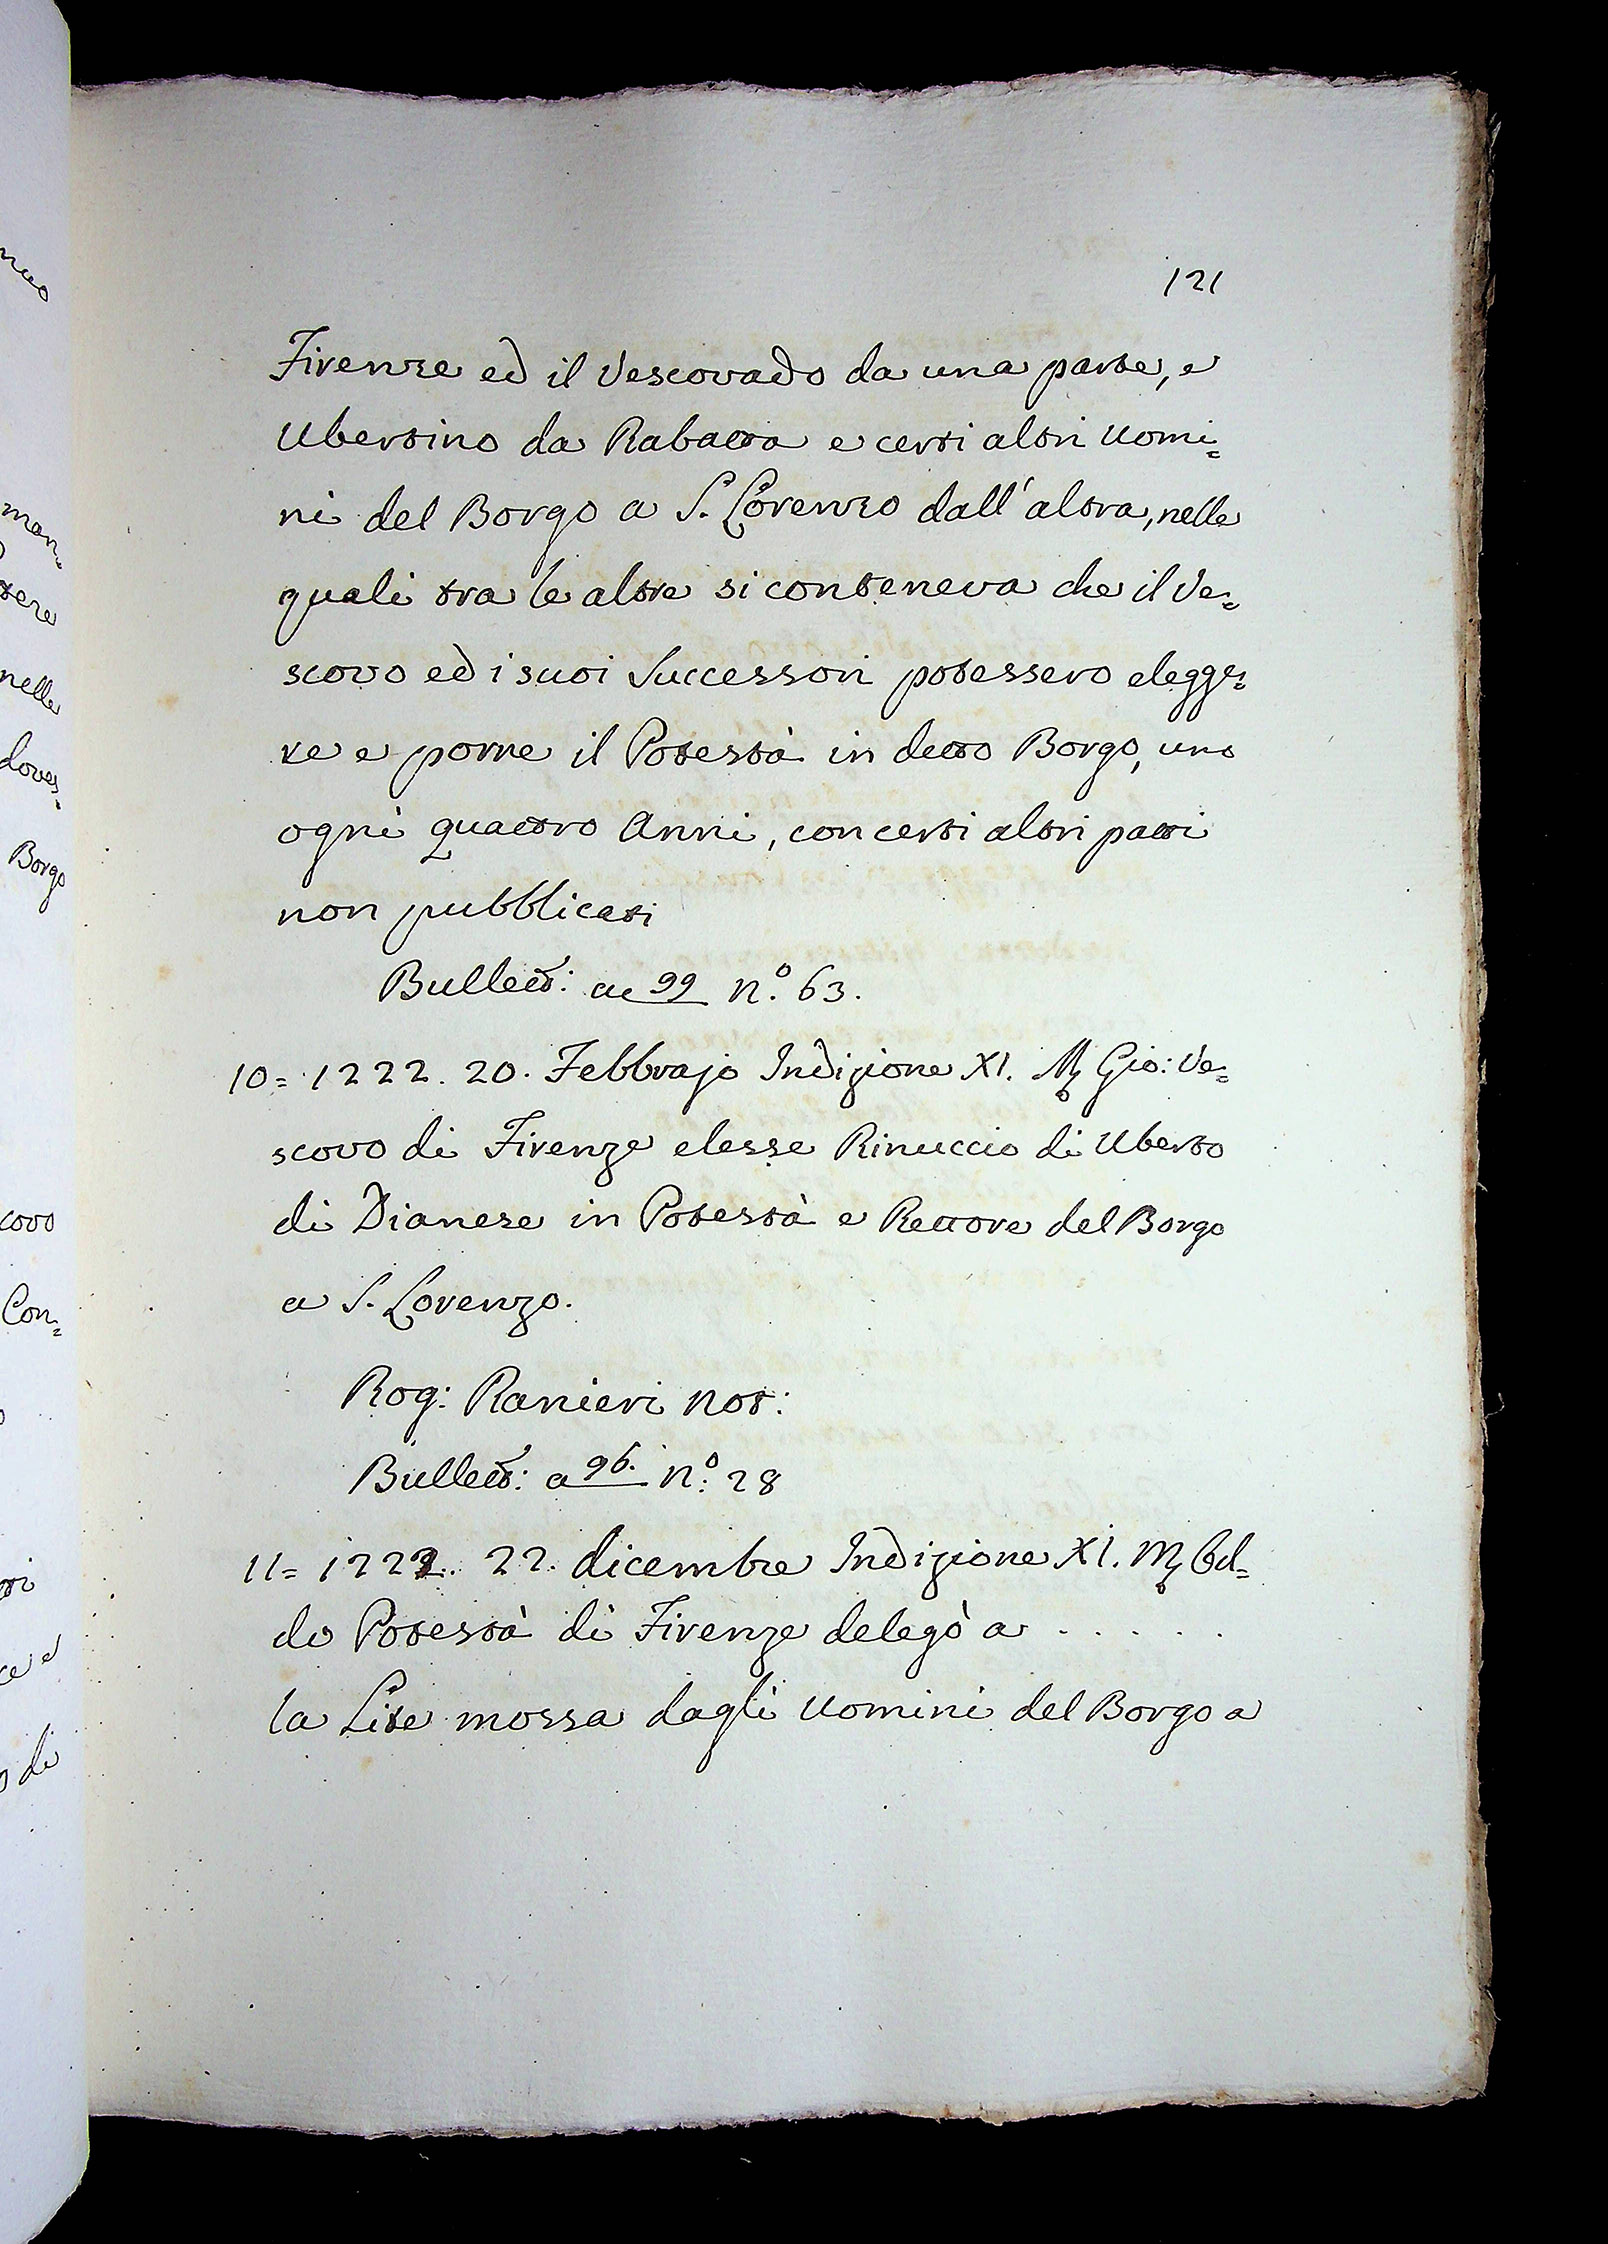 121
Firenze ed il Vescovado da una parte, e
Ubertino da Rabatta e certi altri Uomi=
ni del Borgo a S. Lorenzo dall'altra, nelle
quali tra le altre si conteneva che il Ve=
scovo ed i suoi Successori potessero elegge=
re e porre il Potestà in detto Borgo, uno
ogni quattro Anni, con certi altri patti
non pubblicati
Bullett: a 99 n.º 63.
10= 1222. 20. Febbrajo Indizione XI. M. Gio: Ve=
scovo di Firenze elesse Rinuccio di Uberto
di Dianese in Potestà e Rettore del Borgo
a S. Lorenzo.
Rog: Ranieri Not:
Bullett: a 96. n.º 28
11= 1222. 22. dicembre Indizione XI. M.
do Potestà di Firenze delegò a . . . . . .
la Lite mossa dagli Uomini del Borgo a
nelle
Borgo
covo
Con=
di